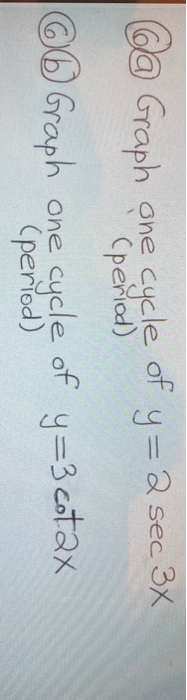 6a Graph one cycle of y = 2 sec 3x
(period)
6b Graph one cycle of y = 3 cot 2x
(period)